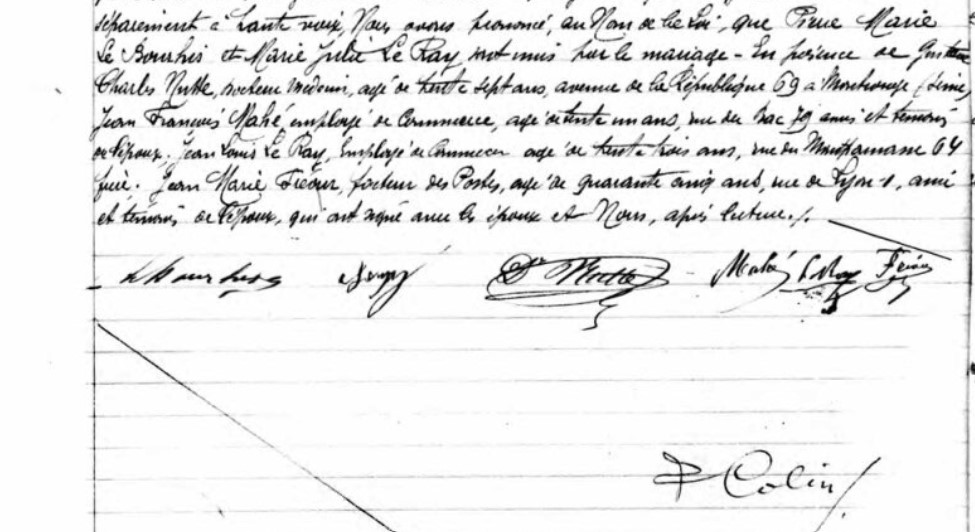 séparément à haute voix, Nous avons prononcé, au Nom de la Loi, que Pierre Marie
Le Bourhis et Marie Julie Le Ray sont unis par le mariage - En présence de Gustave
Charles docteur médecin, agé de trente sept ans, avenue de la République 69 à Montrouge (Seine)
Jean François Mahé, employé de Commerce, agé de trente un ans, rue du Bac 79 amis et témoins
de l'époux. Jean Louis Le Ray, Employé de Commerce agé de trente trois ans, rue du Montparnasse 64
frère. Jean Marie Tréour, facteur des Postes, agé de quarante cinq ans, rue de Lyon 1, ami
et témoins de l'épouse, qui ont signé avec les époux et Nous, après lecture ./.
Le Bourhis Dr Mahé Le Ray
P Colin